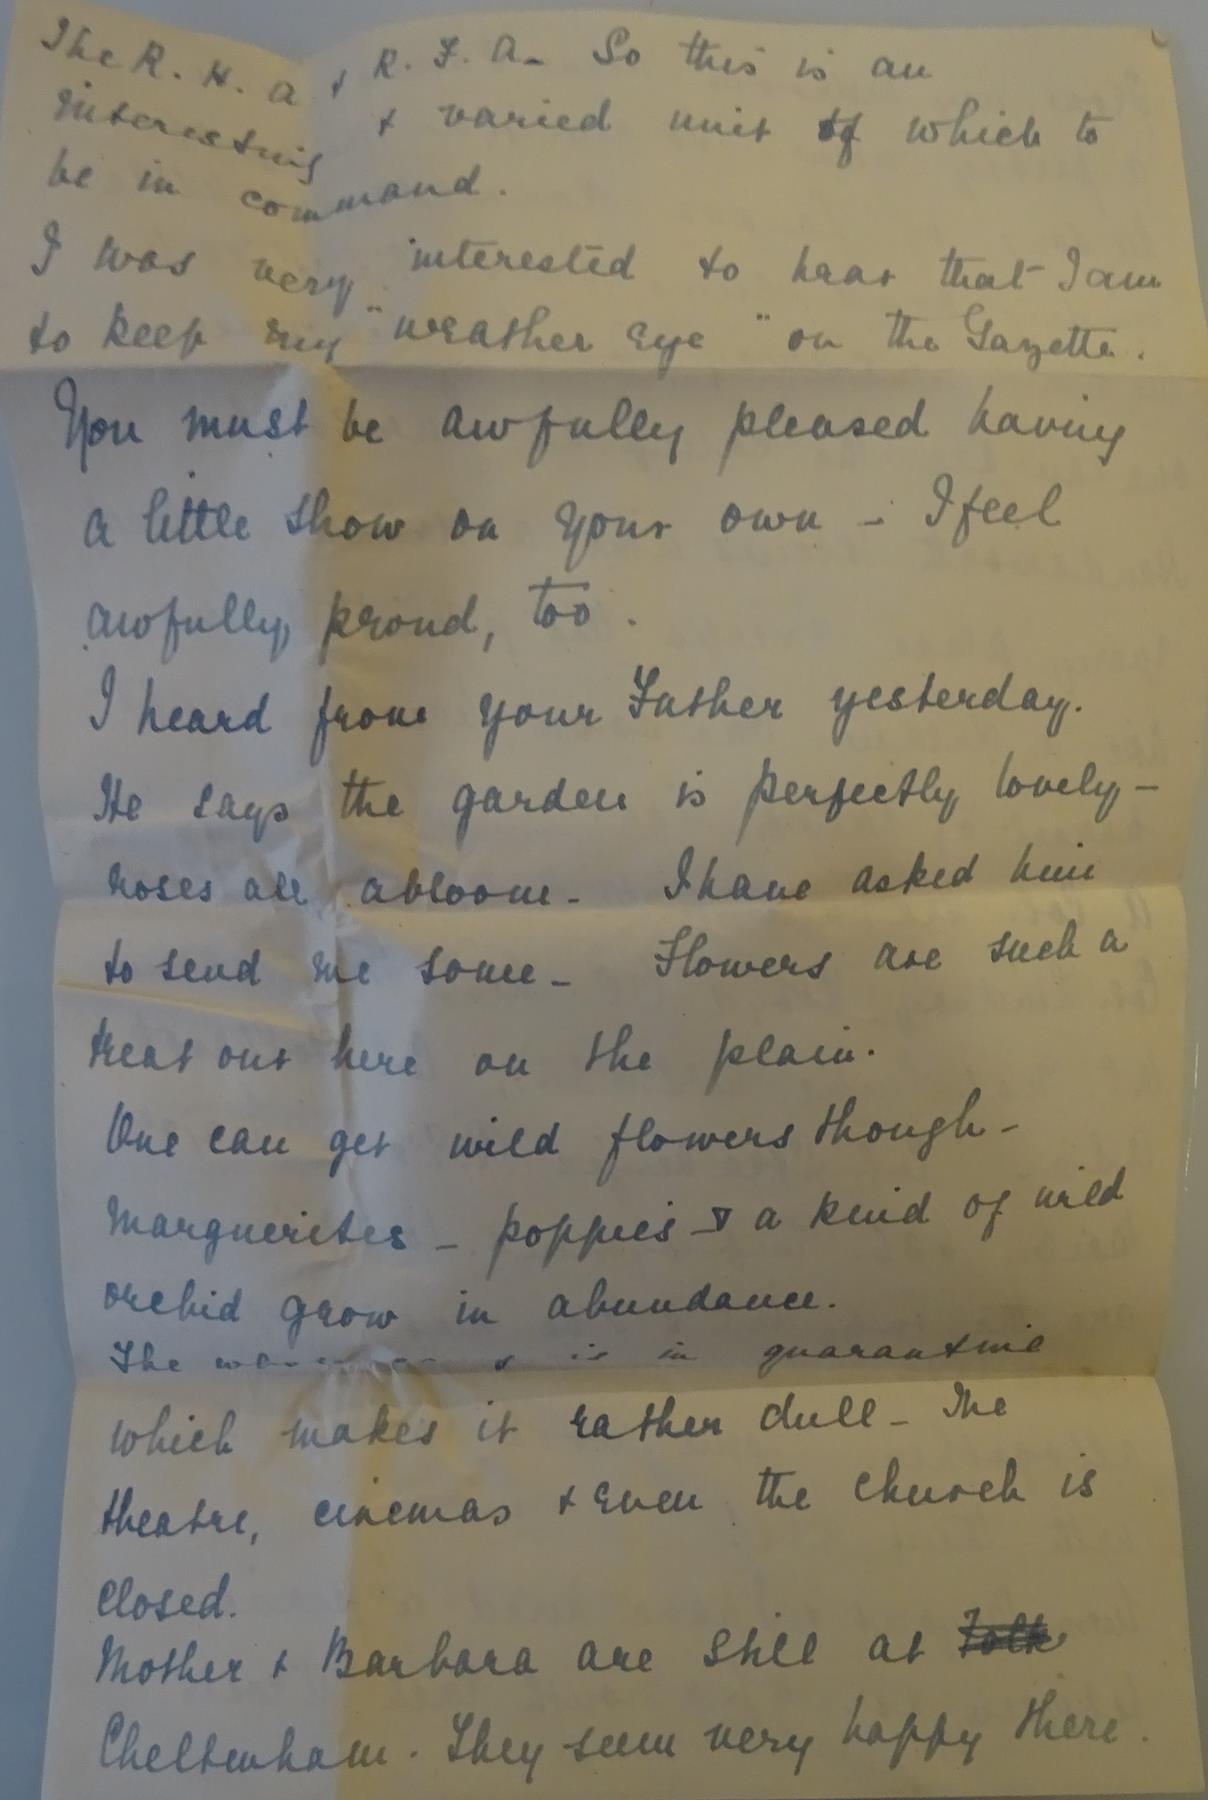 The R. H. A & R. F. A. So this is an
interesting & varied unit of which to
be in command.
I was very interested to hear that I am
to keep my "weather eye" on the Gazette.
You must be awfully pleased having
a little show on your own - I feel
awfully proud, too.
I heard from your Father yesterday.
He says the garden is perfectly lovely -
roses all abloom - I have asked him
to send me some - Flowers are such a
treat out here on the plain.
One can get wild flowers though -
Marguerites - poppies & a kind of wild
orchid grow in abundance.
The is in quarantine
which makes it rather dull - The
theatre, cinemas & even the church is
closed.
Mother & Barbara are still at
Cheltenham. They seem very happy there.